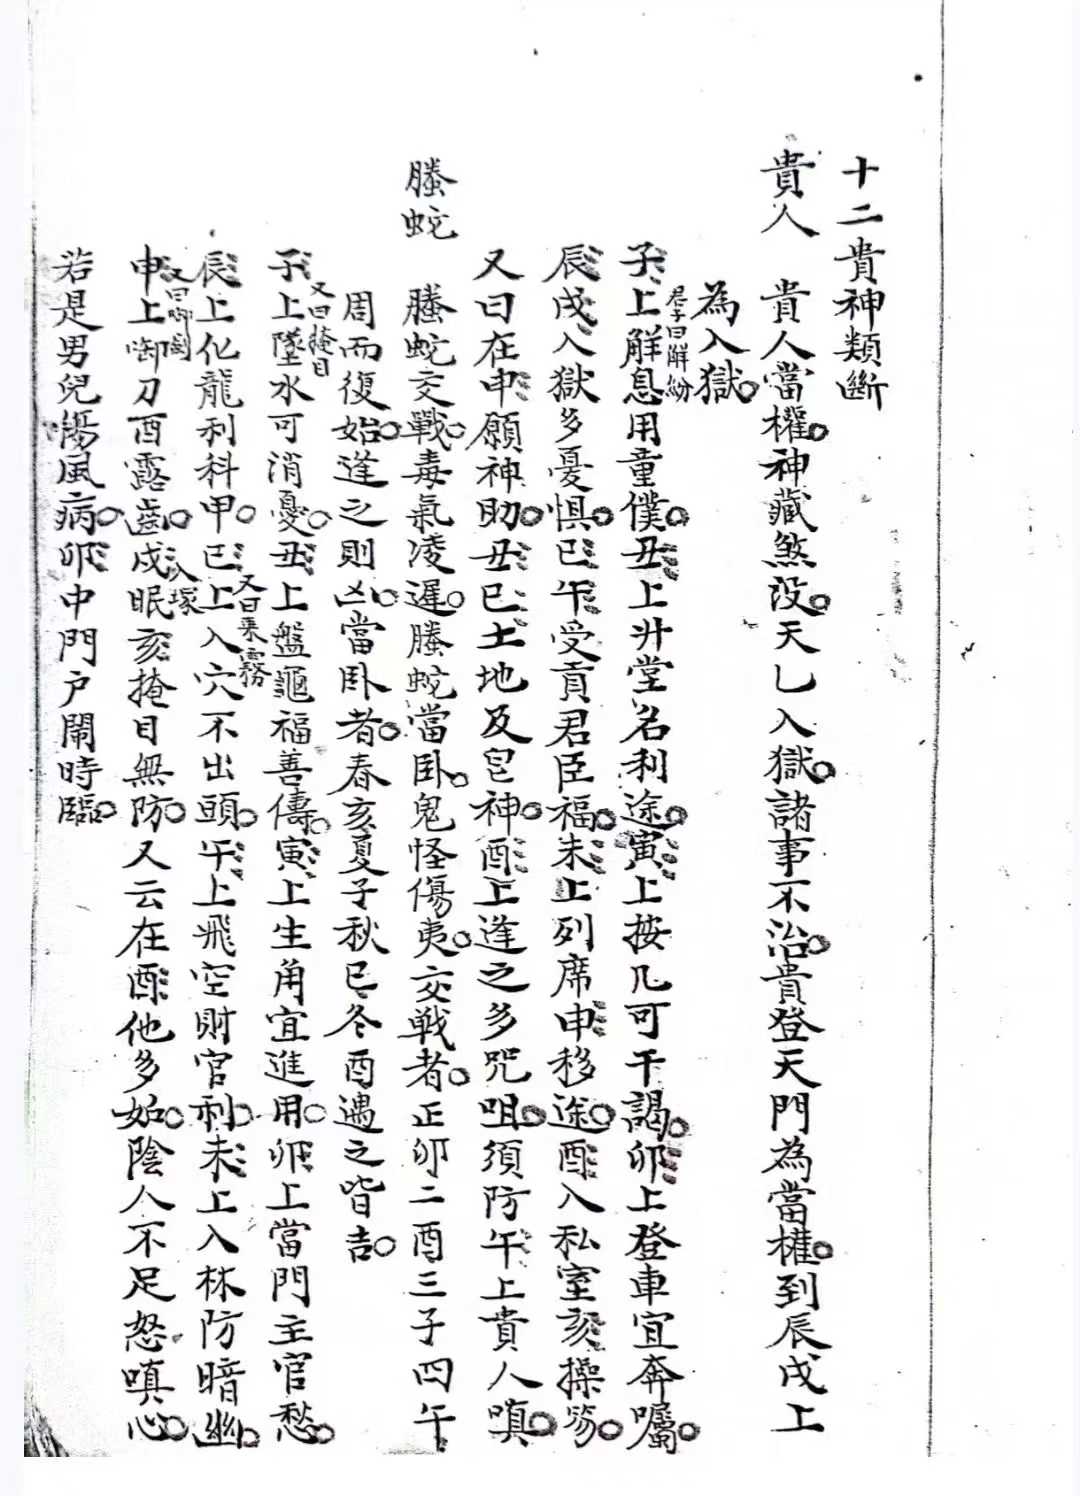 十二貴神類斷
貴人　貴人當權。神藏煞没。天乚入獄。諸事不治。貴登天門為當權。到辰戌上
為入獄。
子上解息用童僕。丑上升堂名利途。寅上按几可干謁。卯上登車宜奔囑。
君子曰解紛
辰戌入獄多憂惧。巳午受貢君臣福。未上列席申移途。酉入私室亥操笏。
又曰在申願神助。丑巳土地及皂神。酉上逢之多咒咀。須防午上貴人嗔。
螣蛇　螣蛇交戰。毒氣凌遲。螣蛇當卧。鬼怪傷夷。交戰者。正卯二酉三子四午
周而復始。逢之則凶。當卧者。春亥夏子秋巳冬酉遇之皆吉。
子上墜水可消憂。丑上盤龜福善儔。寅上生角宜進用。卯上當門主官愁。
又曰掩目
辰上化龍利科甲。巳上入穴不出頭。午上飛空財官利。未上入林防暗幽。
又曰乘霧
申上啣刀酉露齒。戌眠亥掩目無防。又云在酉他多妬。陰人不足怒嗔心。
又曰啣劍
入塚
若是男兒傷風病。卯中門户鬧時臨。